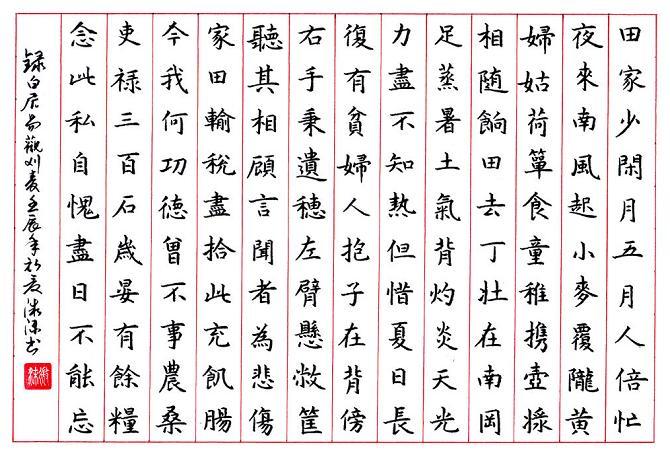 田家少閑月五月人倍忙
夜來南風起小麥覆隴黄
婦姑荷簞食童稚携壺漿
相随餉田去丁壮在南岡
足蒸暑土氣背灼炎天光
力盡不知熱但惜夏日長
復有貧婦人抱子在背傍
右手秉遺穗左臂懸敝筐
聽其相顧言聞者為悲傷
家田輸稅盡拾此充飢腸
今我何功德曾不事農桑
吏禄三百石歲晏有餘糧
念此私自愧盡日不能忘
録白居易觀刈麦壬辰年初夏书